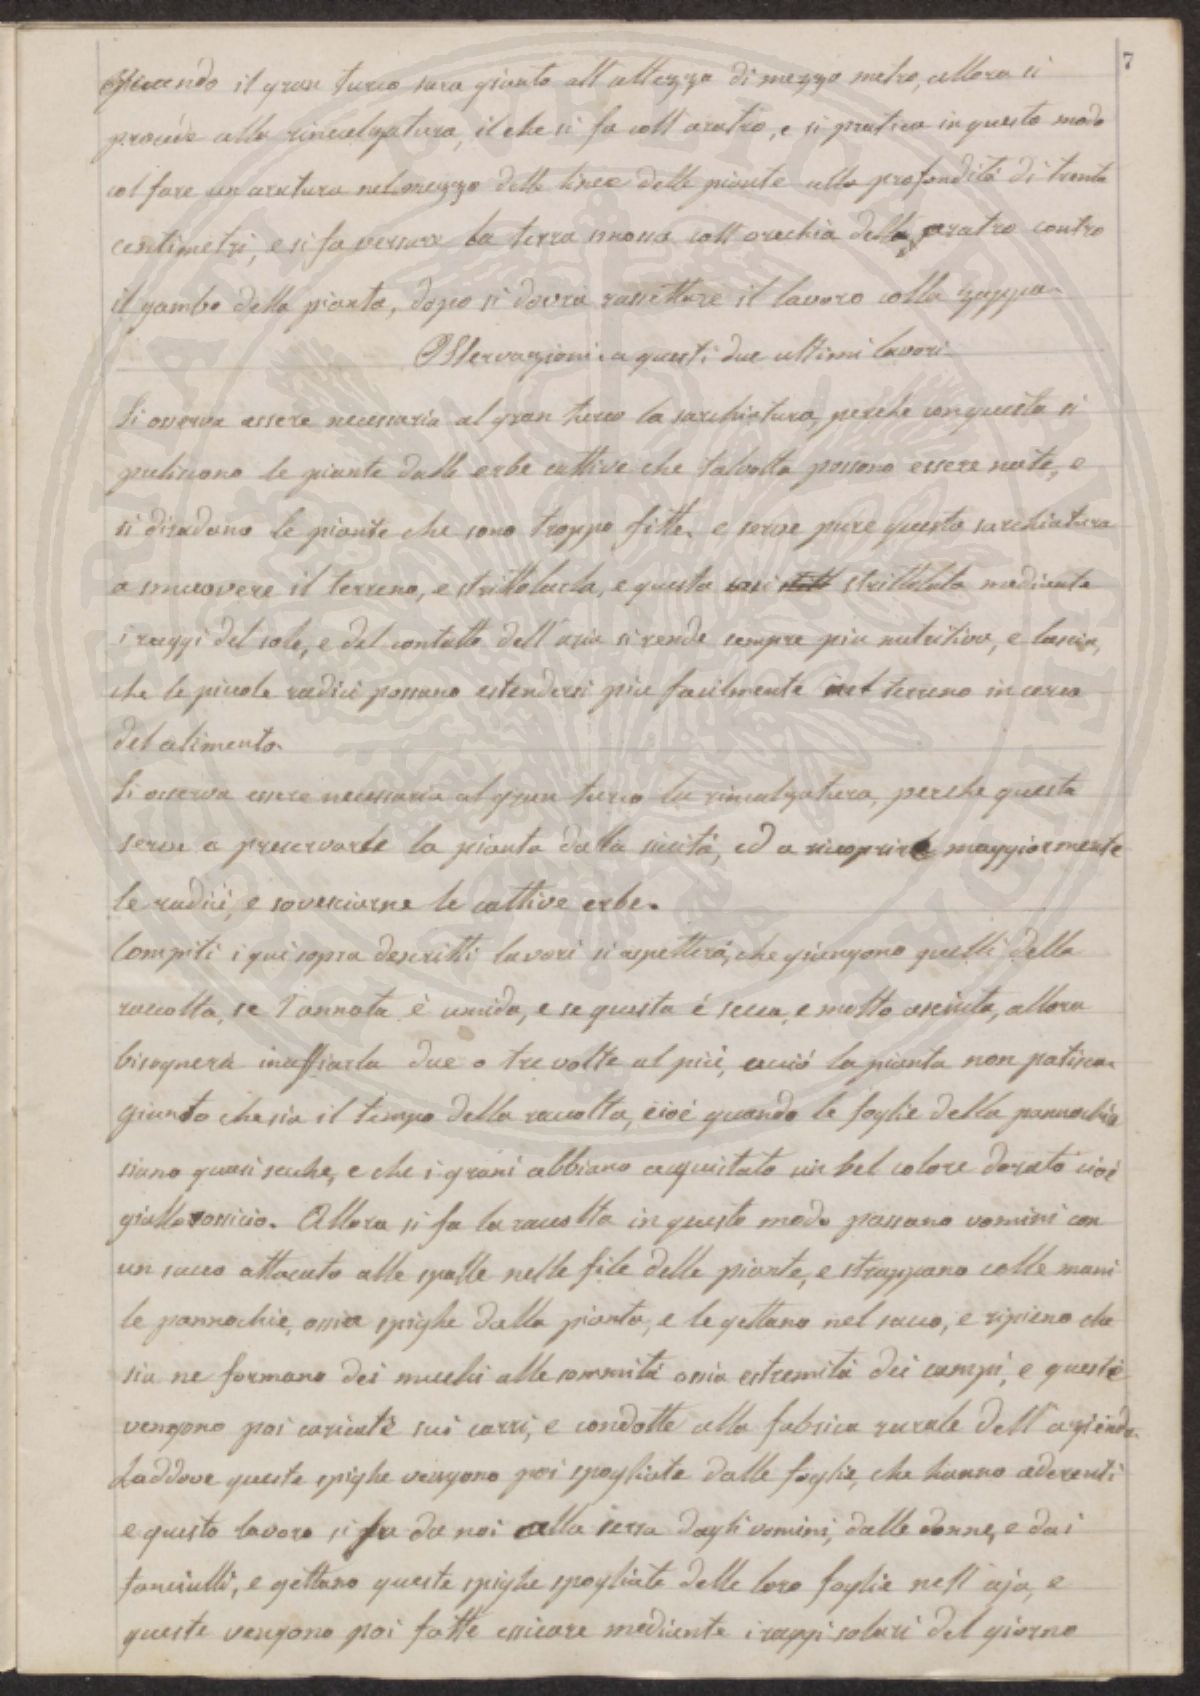 7
Quando il gran turco sara giunto all'altezza di mezzo metro, allora si
procede alla rincalzatura, il che si fa coll'aratro, e si pratica in questo modo
col fare un aratura nel mezzo delle linee delle piante alla profondità di trenta
centimetri, e si fa versare la terra smossa coll'orechia della aratro contro
il gambo della pianta, dopo si dovrà rassettare il lavoro colla zappa.
Osservazioni a questi due ultimi lavori
Si osserva essere necessaria al gran turco la sarchiatura, perchè con questa si
puliscono le piante dalle erbe cattive che talvolta possono essere nate, e
si diradano le piante che sono troppo fitte. e serve pure questa sarchiatura
a smuovere il terreno, e stritolarla, e questa così stritolata mediante
i raggi del sole, e del contatto dell'aria si rende sempre piu nutritiva, e lascia,
che le piccole radici possano estendersi piu facilmente nel terreno in cerca
del alimento.
Si osserva essere necessaria al gran turco la rincalzatura, perche questa
serve a preservarle la pianta dalla siccità, ed a ricoprire maggiormente
le radici, e sovesciarne le cattive erbe.
Compiti i qui sopra descritti lavori si aspetterà, che giungono quelli della
raccolta, se l'annata è umida, e se questa é secca, e molto asciuta, allora
bisognerà inaffiarla due o tre volte al più, acciò la pianta non patisca.
Giunto che sia il tempo della raccolta, cioé quando le foglie della pannochia
siano quasi secche, e che i grani abbiano acquistato un bel colore dorato cioé
giallo rossicio. Allora si fa la raccolta in questo modo passano uomini con
un sacco attacato alle spalle nelle file delle piante, e strappano colle mani
le pannochie, ossia spighe dalla pianta, e le gettano nel sacco, e ripieno che
sia ne formano dei mucchi alle sommità ossia estremità dei campi, e queste
vengono poi caricate sui carri, e condotte alla fabrica rurale dell'azienda.
Laddove queste spighe vengono poi spogliate dalle foglie, che hanno aderenti
e questo lavoro si fa da noi alla sera dagli uomini, dalle donne, e dai
fanciulli, e gettano queste spighe spogliate delle loro foglie nell'aja, e
queste vengono poi fatte essicare mediante i raggi solari del giorno